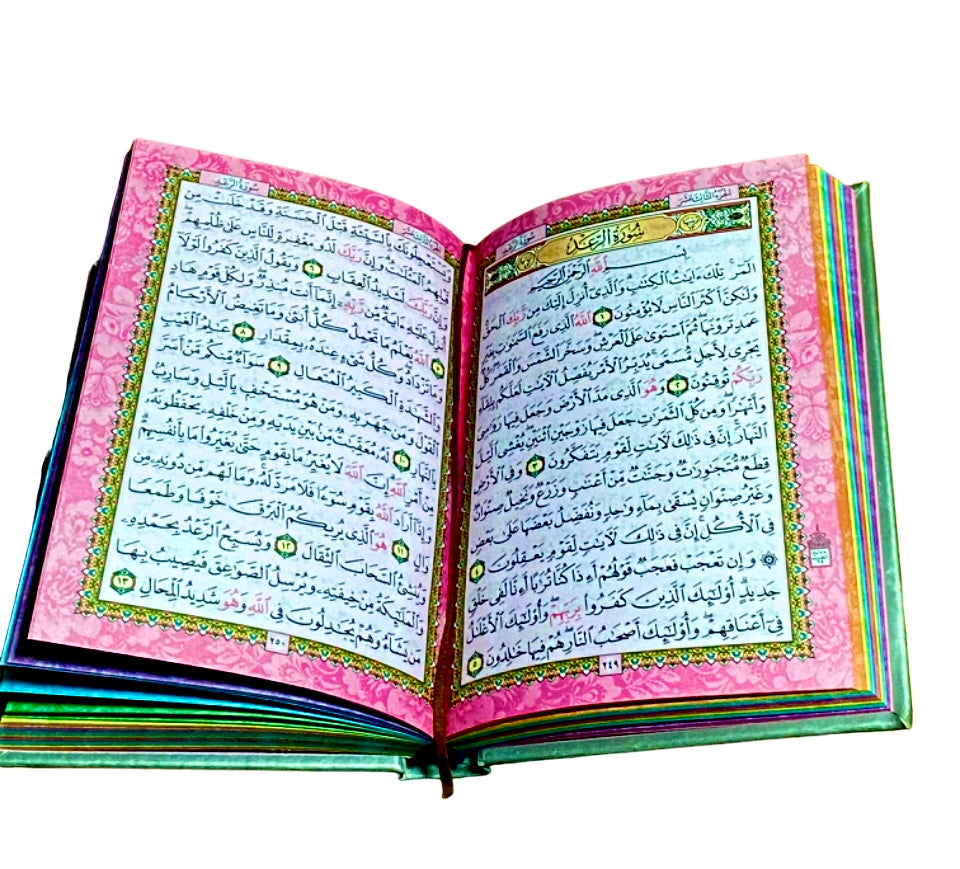 الجزء الثالث عشر
سورة الرعد
سُورَةُ الرَّعْدِ
بِسْمِ ٱللَّهِ ٱلرَّحْمَٰنِ ٱلرَّحِيمِ
الٓمٓر ۚ تِلْكَ ءَايَٰتُ ٱلْكِتَٰبِ ۗ وَٱلَّذِىٓ أُنزِلَ إِلَيْكَ مِن رَّبِّكَ ٱلْحَقُّ
وَلَٰكِنَّ أَكْثَرَ ٱلنَّاسِ لَا يُؤْمِنُونَ ١ ٱللَّهُ ٱلَّذِى رَفَعَ ٱلسَّمَٰوَٰتِ بِغَيْرِ
عَمَدٍ تَرَوْنَهَا ۖ ثُمَّ ٱسْتَوَىٰ عَلَى ٱلْعَرْشِ ۖ وَسَخَّرَ ٱلشَّمْسَ وَٱلْقَمَرَ ۖ كُلٌّ
يَجْرِى لِأَجَلٍ مُّسَمًّى ۚ يُدَبِّرُ ٱلْأَمْرَ يُفَصِّلُ ٱلْءَايَٰتِ لَعَلَّكُم بِلِقَآءِ
رَبِّكُمْ تُوقِنُونَ ٢ وَهُوَ ٱلَّذِى مَدَّ ٱلْأَرْضَ وَجَعَلَ فِيهَا رَوَٰسِىَ
وَأَنْهَٰرًا ۖ وَمِن كُلِّ ٱلثَّمَرَٰتِ جَعَلَ فِيهَا زَوْجَيْنِ ٱثْنَيْنِ ۖ يُغْشِى ٱلَّيْلَ
ٱلنَّهَارَ ۚ إِنَّ فِى ذَٰلِكَ لَءَايَٰتٍ لِّقَوْمٍ يَتَفَكَّرُونَ ٣ وَفِى ٱلْأَرْضِ
قِطَعٌ مُّتَجَٰوِرَٰتٌ وَجَنَّٰتٌ مِّنْ أَعْنَٰبٍ وَزَرْعٌ وَنَخِيلٌ صِنْوَانٌ
وَغَيْرُ صِنْوَانٍ يُسْقَىٰ بِمَآءٍ وَٰحِدٍ وَنُفَضِّلُ بَعْضَهَا عَلَىٰ بَعْضٍ
فِى ٱلْأُكُلِ ۚ إِنَّ فِى ذَٰلِكَ لَءَايَٰتٍ لِّقَوْمٍ يَعْقِلُونَ ٤
۞ وَإِن تَعْجَبْ فَعَجَبٌ قَوْلُهُمْ أَءِذَا كُنَّا تُرَٰبًا أَءِنَّا لَفِى خَلْقٍ
جَدِيدٍ ۗ أُو۟لَٰٓئِكَ ٱلَّذِينَ كَفَرُوا۟ بِرَبِّهِمْ ۖ وَأُو۟لَٰٓئِكَ ٱلْأَغْلَٰلُ
فِىٓ أَعْنَاقِهِمْ ۖ وَأُو۟لَٰٓئِكَ أَصْحَٰبُ ٱلنَّارِ ۖ هُمْ فِيهَا خَٰلِدُونَ ٥
٢٤٩
الجزء الثالث عشر
سورة الرعد
وَيَسْتَعْجِلُونَكَ بِٱلسَّيِّئَةِ قَبْلَ ٱلْحَسَنَةِ وَقَدْ خَلَتْ مِن
قَبْلِهِمُ ٱلْمَثُلَٰتُ ۗ وَإِنَّ رَبَّكَ لَذُو مَغْفِرَةٍ لِّلنَّاسِ عَلَىٰ ظُلْمِهِمْ ۖ
وَإِنَّ رَبَّكَ لَشَدِيدُ ٱلْعِقَابِ ٦ وَيَقُولُ ٱلَّذِينَ كَفَرُوا۟ لَوْلَآ
أُنزِلَ عَلَيْهِ ءَايَةٌ مِّن رَّبِّهِۦٓ ۗ إِنَّمَآ أَنتَ مُنذِرٌ ۖ وَلِكُلِّ قَوْمٍ هَادٍ
٧ ٱللَّهُ يَعْلَمُ مَا تَحْمِلُ كُلُّ أُنثَىٰ وَمَا تَغِيضُ ٱلْأَرْحَامُ
وَمَا تَزْدَادُ ۖ وَكُلُّ شَىْءٍ عِندَهُۥ بِمِقْدَارٍ ٨ عَٰلِمُ ٱلْغَيْبِ
وَٱلشَّهَٰدَةِ ٱلْكَبِيرُ ٱلْمُتَعَالِ ٩ سَوَآءٌ مِّنكُم مَّنْ أَسَرَّ
ٱلْقَوْلَ وَمَن جَهَرَ بِهِۦ وَمَنْ هُوَ مُسْتَخْفٍۭ بِٱلَّيْلِ وَسَارِبٌۢ
بِٱلنَّهَارِ ١٠ لَهُۥ مُعَقِّبَٰتٌ مِّنۢ بَيْنِ يَدَيْهِ وَمِنْ خَلْفِهِۦ يَحْفَظُونَهُۥ
مِنْ أَمْرِ ٱللَّهِ ۗ إِنَّ ٱللَّهَ لَا يُغَيِّرُ مَا بِقَوْمٍ حَتَّىٰ يُغَيِّرُوا۟ مَا بِأَنفُسِهِمْ ۗ
وَإِذَآ أَرَادَ ٱللَّهُ بِقَوْمٍ سُوٓءًا فَلَا مَرَدَّ لَهُۥ ۚ وَمَا لَهُم مِّن دُونِهِۦ مِن
وَالٍ ١١ هُوَ ٱلَّذِى يُرِيكُمُ ٱلْبَرْقَ خَوْفًا وَطَمَعًا
وَيُنشِئُ ٱلسَّحَابَ ٱلثِّقَالَ ١٢ وَيُسَبِّحُ ٱلرَّعْدُ بِحَمْدِهِۦ
وَٱلْمَلَٰٓئِكَةُ مِنْ خِيفَتِهِۦ وَيُرْسِلُ ٱلصَّوَٰعِقَ فَيُصِيبُ بِهَا
مَن يَشَآءُ وَهُمْ يُجَٰدِلُونَ فِى ٱللَّهِ وَهُوَ شَدِيدُ ٱلْمِحَالِ ١٣
٢٥٠